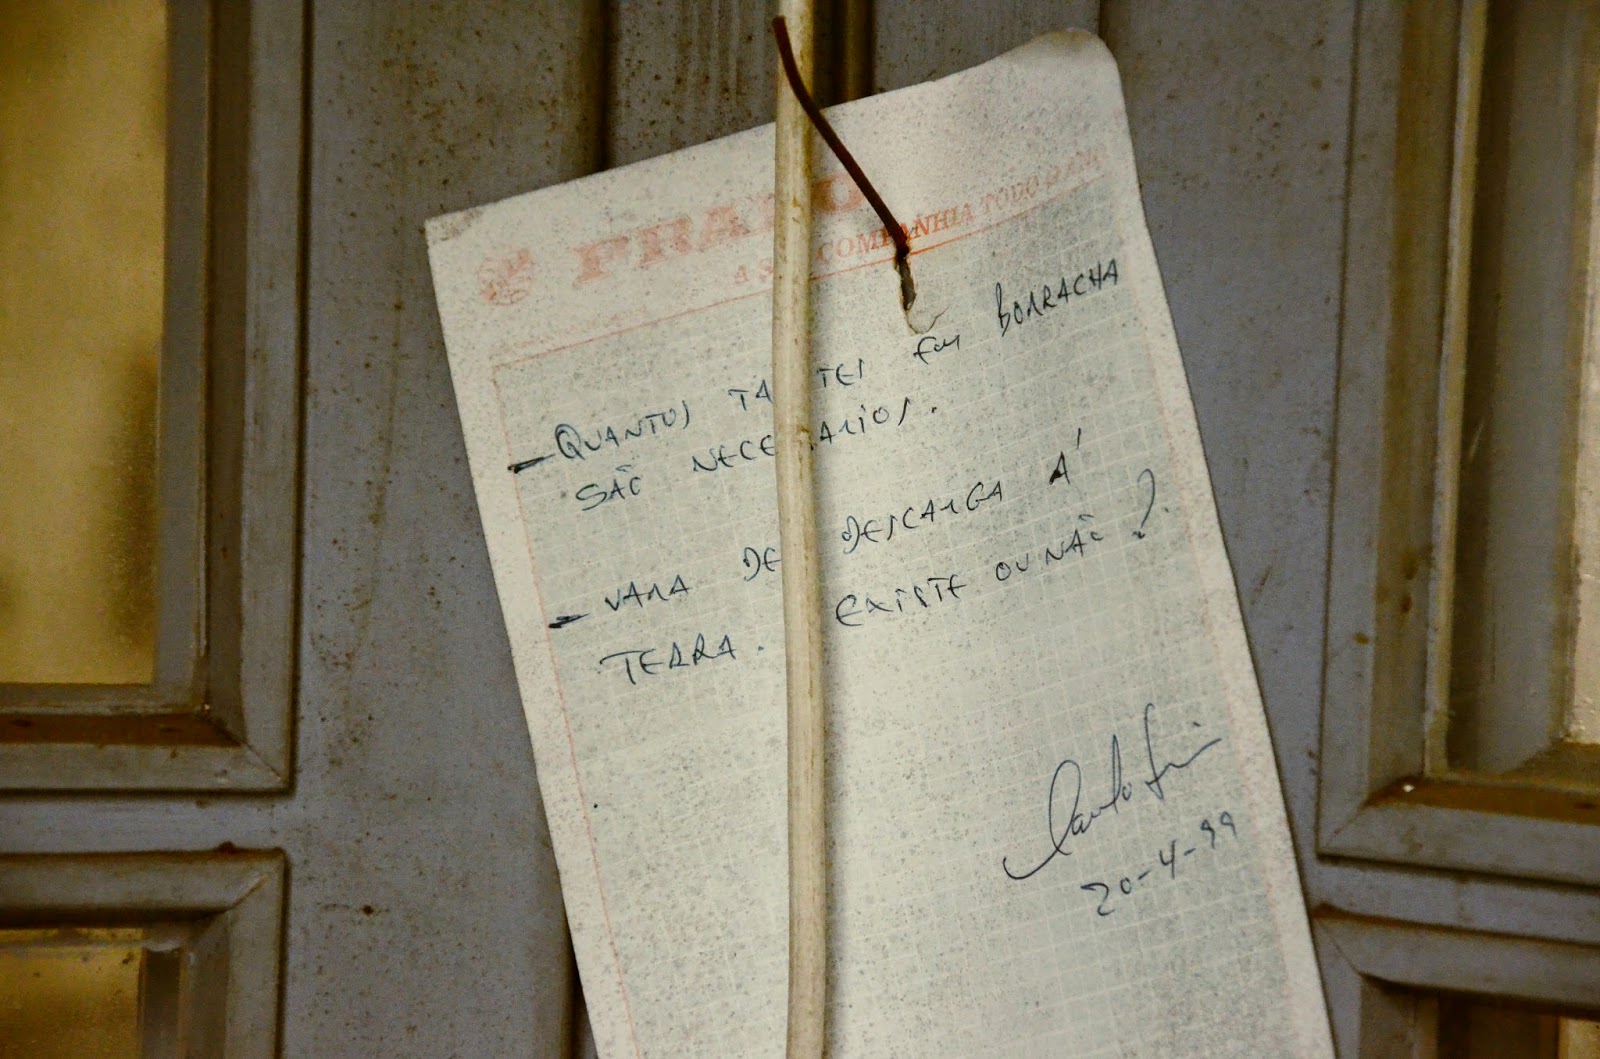 COMPANHIA TODO
- QUANTOS TA TES EM BORRACHA
SÃO NECESSARIOS.
- VARA DE DESCARGA Á
TERRA. EXISTE OU NÃO ?
20-4-99